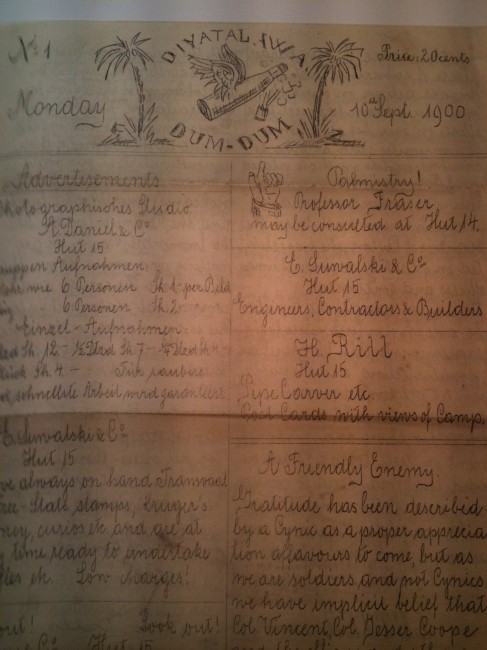 No 1
DIYATALAWA
DUM-DUM
Price: 20 cents
Monday
10th Sept. 1900
Advertisements
Photographisches Studio
A. Daniel & Co
Hut 15
Gruppen Aufnahmen:
wie 6 Personen Sh. 1- per Bild
6 Personen Sh. 2-
Einzel-Aufnahmen:
Sh. 12- ½ Dtzd Sh. 7-
Sh. 4- Für saubere
schnellste Arbeit wird garantiert.
E. Suwalski & Co
Hut 15
always on hand Transvaal
Free-State stamps, Kruger's
money, curios etc. and are at
time ready to undertake
etc. Low Marges!
out! Look out!
Co Hut 15
Palmistry!
Professor Fraser
may be consulted at Hut 14.
E. Suwalski & Co
Hut 15
Engineers, Contractors & Builders
H. Rill
Hut 15
Pipe Carver etc.
Post Cards with views of Camp.
A Friendly Enemy.
Gratitude has been describid
by a Cynic as a proper apprecia
tion of favours to come, but as
we are soldiers, and not Cynics
we have implicit belief that
Col. Vincent, Col. Jesser Coope